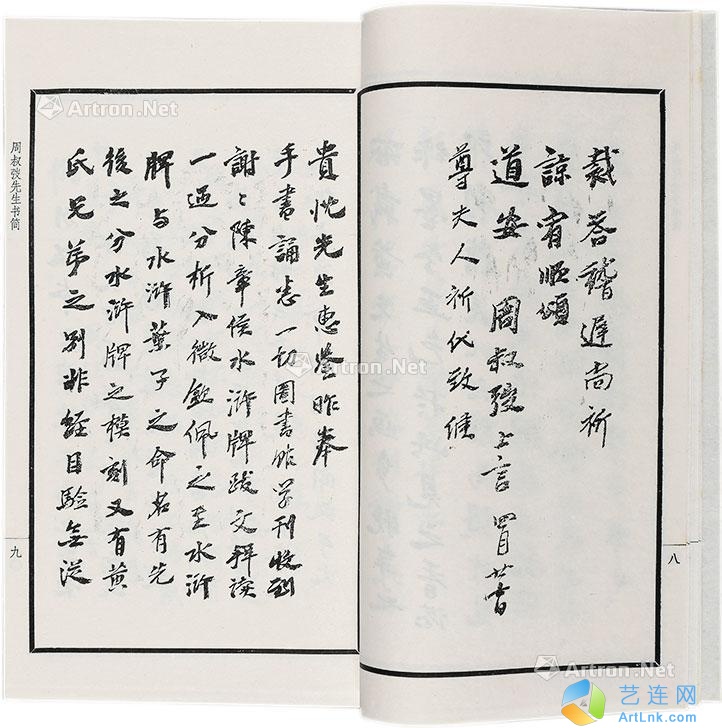 裁答稽遲尚祈
諒宥順頌
道安 周叔弢上言 四月廿一日
尊夫人祈代致候
八
貴忱先生惠鑒昨奉
手書誦悉一切圖書館學刊收到
謝〻陳章侯水滸牌跋文拜讀
一過分析入微欽佩之至水滸
牌与水滸葉子之命名有先
後之分水滸牌之模刻又有黄
氏兄弟之别非經目驗無從
周叔弢先生书简
九
Artron.Net
Artron.Net
Artron.Net
Artron.Net
艺连网
ArtLnk.com